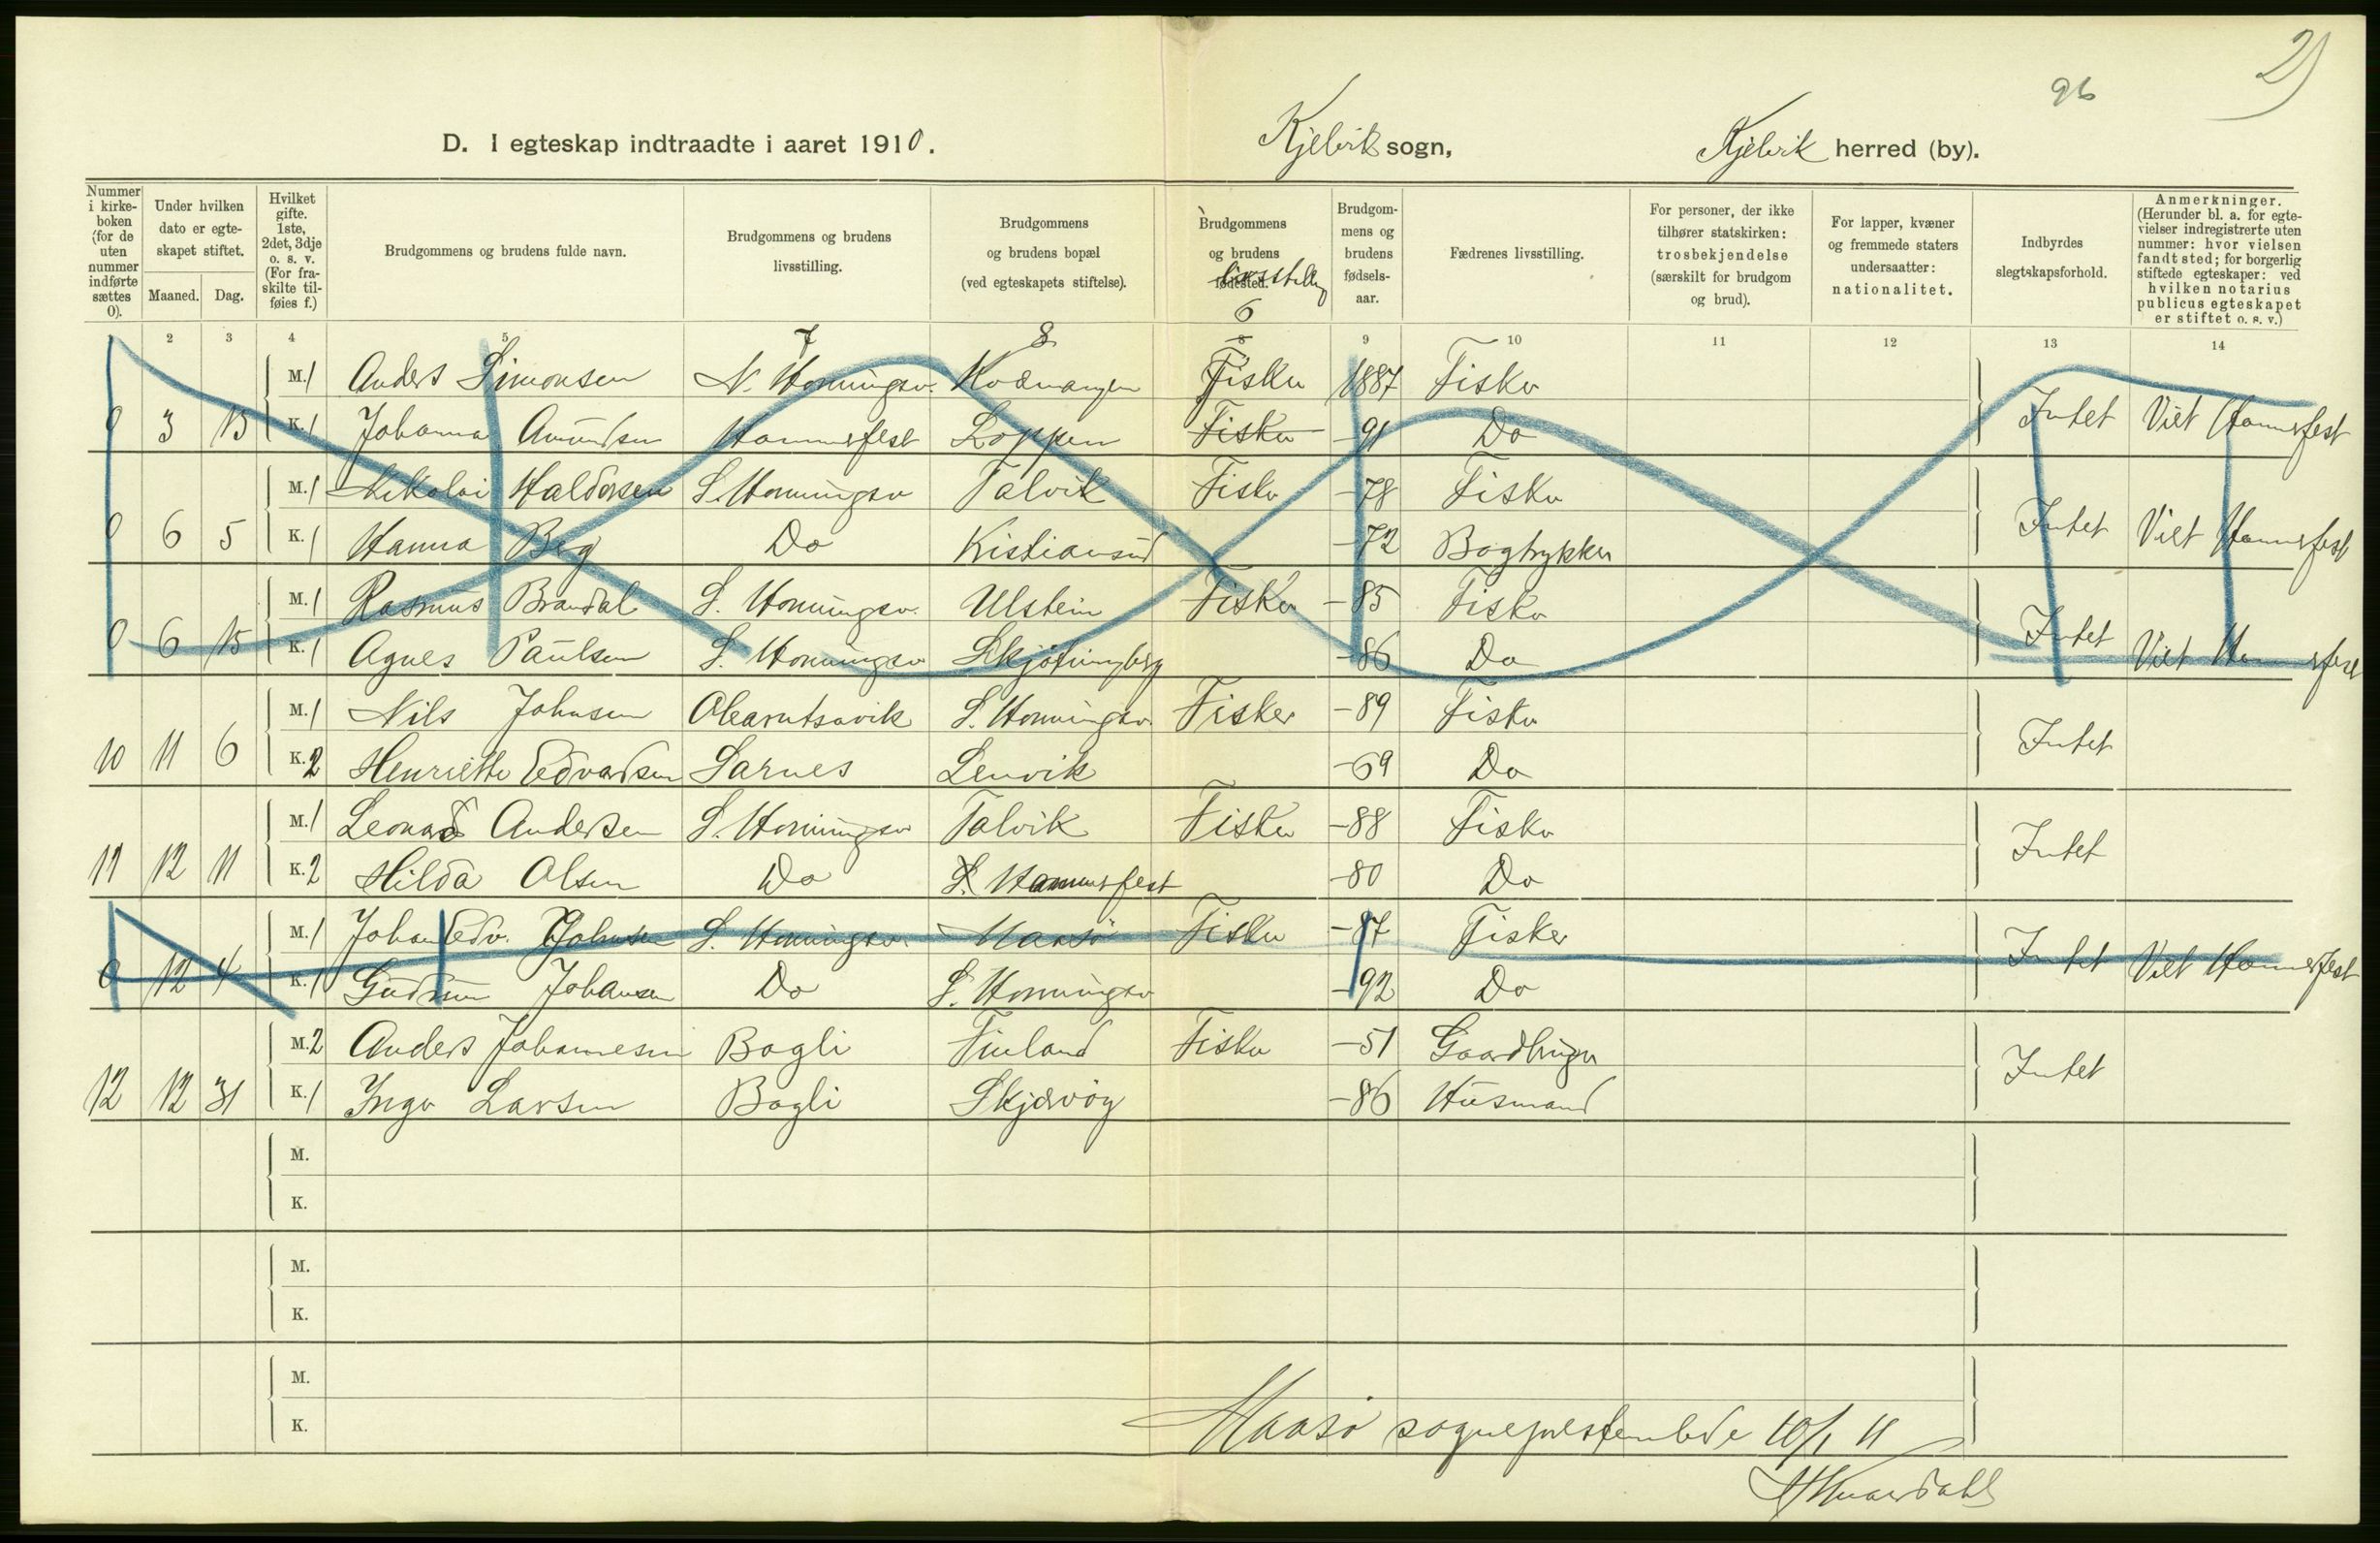 2)
96
D. I egteskap indtraadte i aaret 1910. Kjelvik sogn, Kjelvik herred (by).
Nummer i kirkeboken (for de uten nummer indførte sættes 0).
Under hvilken dato er egteskapet stiftet.
Maaned. Dag.
Hvilket gifte. 1ste, 2det, 3dje o. s. v. (For fraskilte tilføies f.)
Brudgommens og brudens fulde navn.
Brudgommens og brudens livsstilling.
Brudgommens og brudens bopæl (ved egteskapets stiftelse).
Brudgommens og brudens fødested. livsstilling
Brudgommens og brudens fødselsaar.
Fædrenes livsstilling.
For personer, der ikke tilhører statskirken: trosbekjendelse (særskilt for brudgom og brud).
For lapper, kvæner og fremmede staters undersaatter: nationalitet.
Indbyrdes slegtskapsforhold.
Anmerkninger. (Herunder bl. a. for egtevielser indregistrerte uten nummer: hvor vielsen fandt sted; for borgerlig stiftede egteskaper: ved hvilken notarius publicus egteskapet er stiftet o. s. v.)
2 3 4 5 7 8 6 8 9 10 11 12 13 14
M. 1 Anders Simonsen N. Honningsv. Kvænangen Fisker 1887 Fisker
0 3 15 K. 1 Johanna Amundsen Hammerfest Loppen Fisker -91 Do Intet Viet Hammerfest
M. 1 Nikolai Haldorsen S. Honningsv Talvik Fisker -78 Fisker
0 6 5 K. 1 Hanna Berg Do Kistiansund -72 Bogtrykker Intet Viet Hammerfest
M. 1 Rasmus Brandal S. Honningsv. Ulstein Fisker -85 Fisker
0 6 15 K. 1 Agnes Paulsen S. Honningsv Skjötningberg -86 Do Intet Viet Hammerfest
M. 1 Nils Johnsen S. Honningsv. Fisker -89 Fisker
10 11 6 K. 2 Henriette Edvardsen Sarnes Lenvik -69 Do Intet
M. 1 Leonard Andersen S. Honningsv Talvik Fisker -88 Fisker
11 12 11 K. 2 Hilda Olsen Do Hammerfest -80 Do Intet
M. 1 Johan Edv. Johnsen S. Honningsv. Maasö Fisker -87 Fisker
0 12 4 K. 1 Gudrun Johansen Do S. Honningsv -92 Do Intet Viet Hammerfest
M. 2 Anders Johannesen Bogli Finland Fisker -51 Gaardbruger
12 12 31 K. 1 Inga Larsen Bogli Skjærvöy -86 Husmand Intet
M.
K.
M.
K.
M.
K.
Maasö sogneprestembede 10/1 11